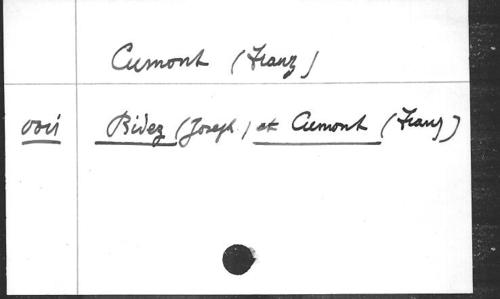 Cumont (Franz)
voir Bidez (Joseph) et Cumont (Franz)